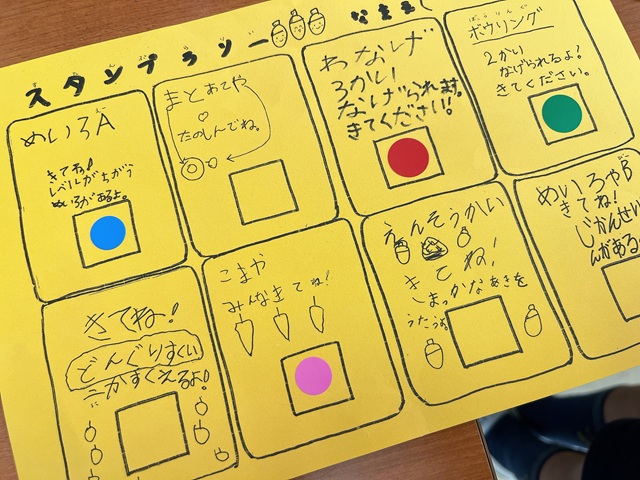 スタンプラリー
なまえ
めいろA
きてね!
レベルがちがう
めいろがあるよ。
まとあてや
たのしんでね。
わなげ
3かい
なげられます。
きてください!
ぼうりんぐ
ボウリング
2かい
なげられるよ!
きてください。
きてね!
どんぐりすくい
二かすくえるよ!
に
こまや
みんなきてね!
えんそうかい
きてね!
まっかなあきを
うたうよ
めいろやB
きてね!
じかんせい
んがある